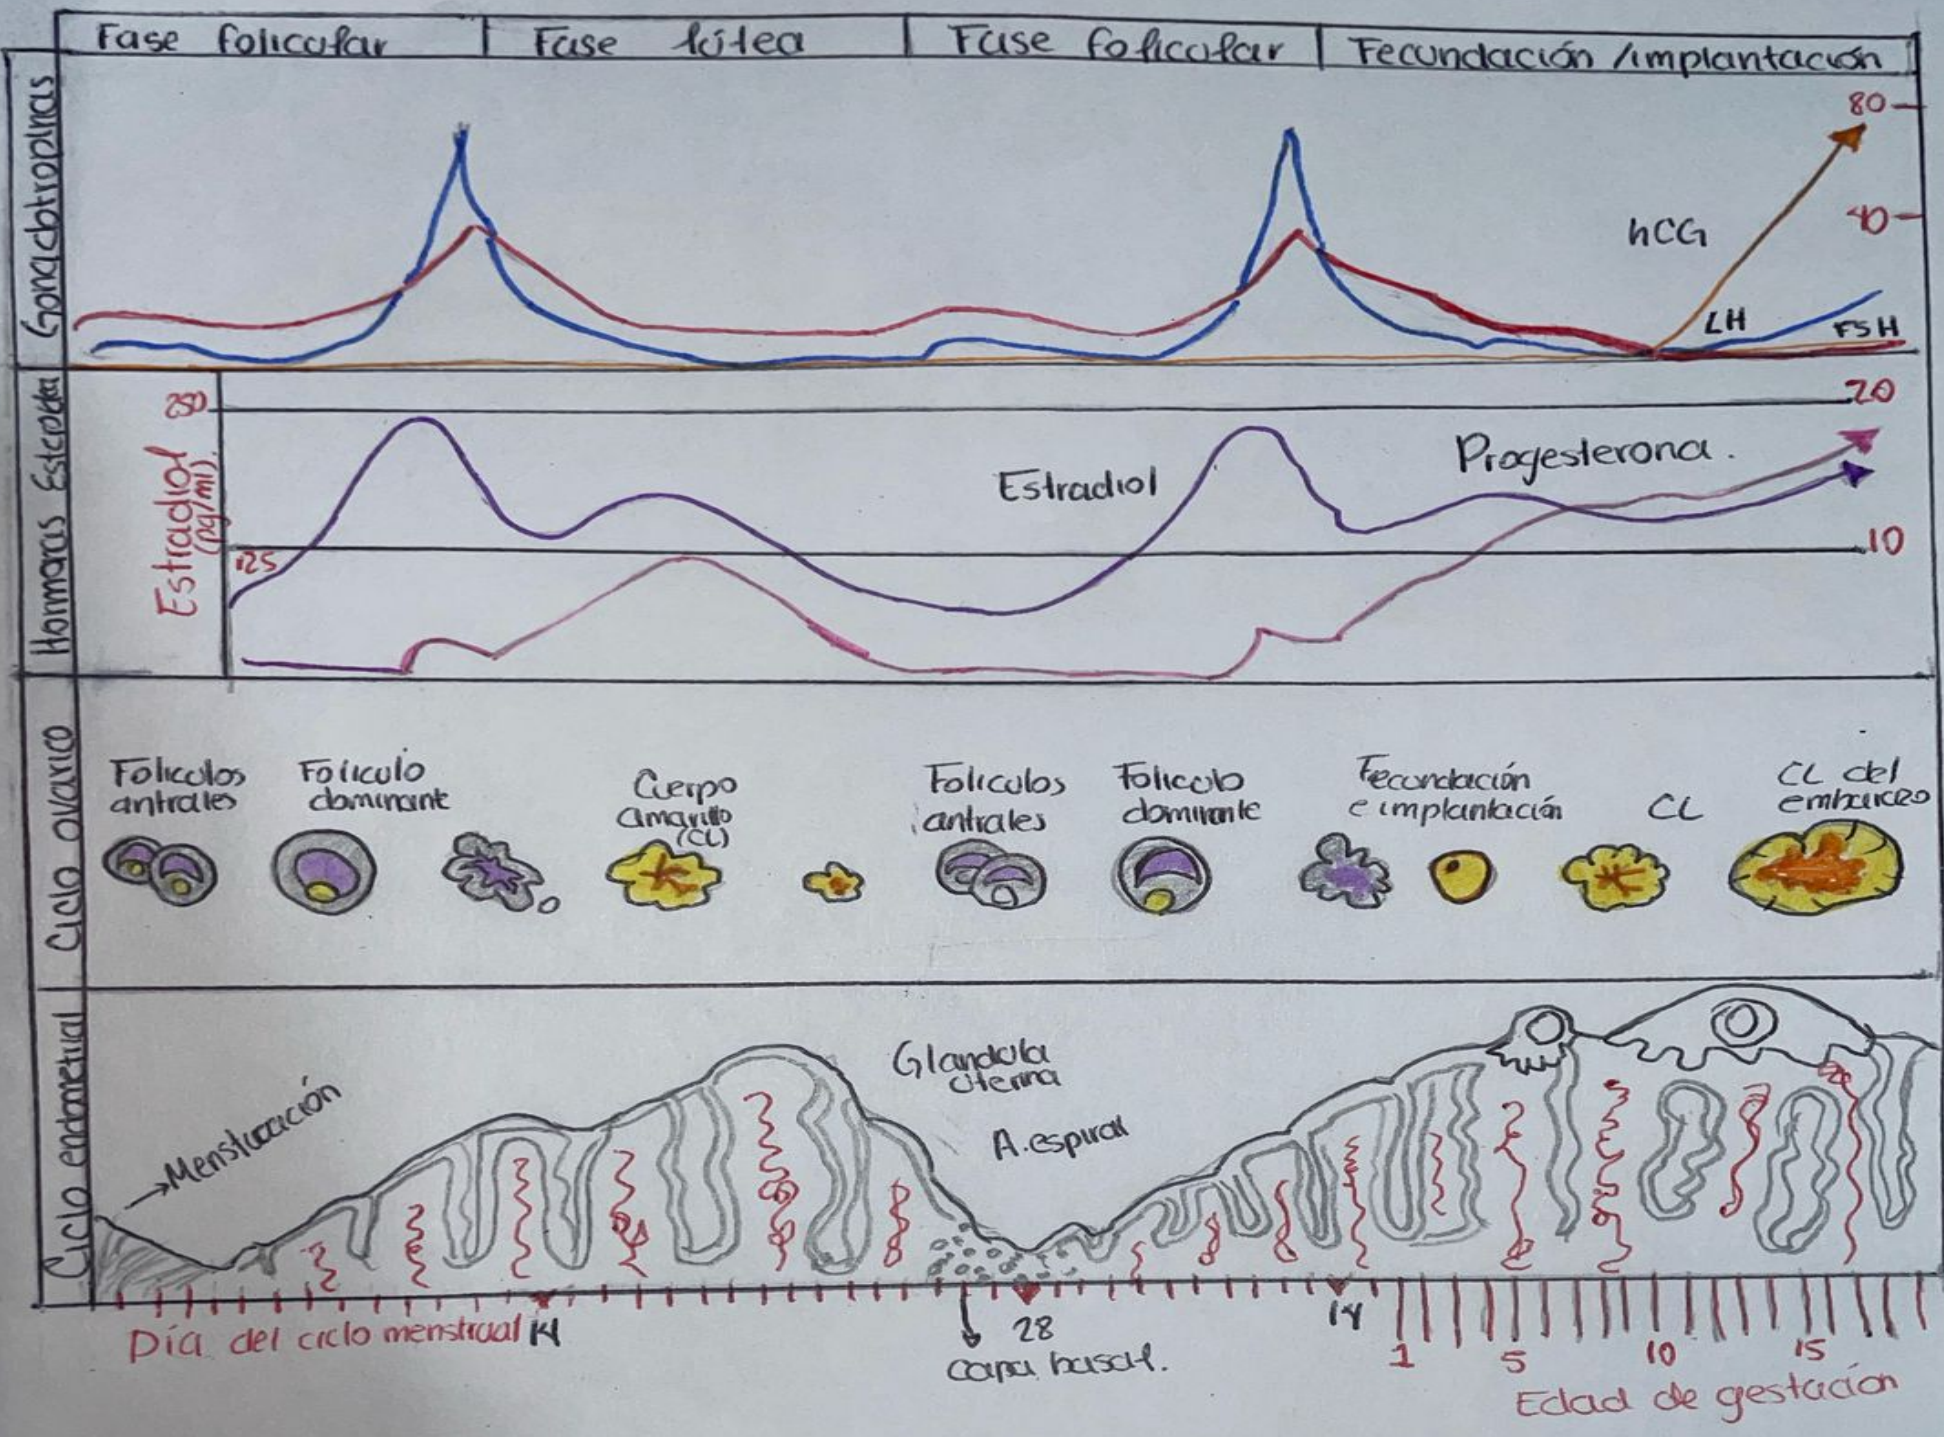 Fase folicular
Fase lútea
Fase folicular
Fecundación /implantación
Gonadotropinas
80
40
hCG
LH
FSH
Estradiol
(pg/ml)
250
125
20
10
Estradiol
Progesterona.
Ciclo ovarico
Foliculos
antrales
Foliculo
dominante
Cuerpo
amarillo
(CL)
Foliculos
antrales
Foliculo
dominante
Fecundación
e implantación
CL
CL del
embarazo
Ciclo endometrial
Menstruación
Glandula
uterina
A. espiral
Día del ciclo menstrual 14
capa basal.
28
14
1
5
10
15
Edad de gestación